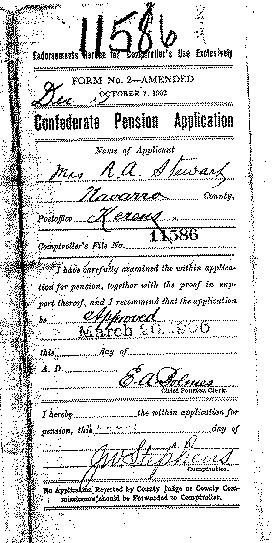 11586
Endorsements Hereon for Comptroller's Use Exclusively
FORM No. 2—AMENDED
OCTOBER 7, 1902
Confederate Pension Application
Name of Applicant
Mrs R. A. Stewart
Navarro County,
Postoffice Kerens.
Comptroller's File No. 11586
I have carefully examined the within applica-
tion for pension, together with the proof in sup-
port thereof, and I recommend that the application
be Approved
March 1906
this day of
A. D.
E. A. Bolmes
Chief Pension Clerk.
I hereby the within application for
pension, this day of
J. W. Stephens
Comptroller.
No Application Rejected by County Judge or County Com-
missioners should be Forwarded to Comptroller.